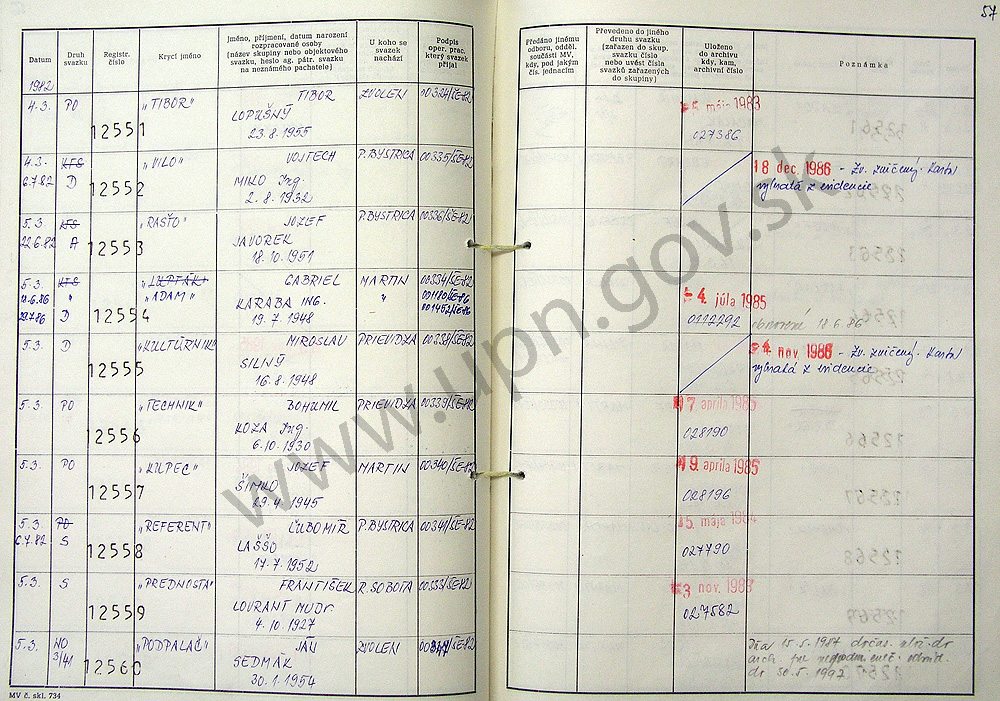 57
Datum
Druh svazku
Registr. číslo
Krycí jméno
Jméno, příjmení, datum narození
rozpracované osoby
(název skupiny nebo objektového
svazku, heslo ag. pátr. svazku
na neznámého pachatele)
U koho se
svazek
nachází
Podpis
oper. prac.
který svazek
přijal
Předáno jinému
odboru, odděl.
součásti MV,
kdy, pod jakým
čís. jednacím
Převedeno do jiného
druhu svazku
(zařazen do skup.
svazku číslo
nebo uvést čísla
svazků zařazených
do skupiny)
Uloženo
do archivu
kdy, kam,
archivní číslo
Poznámka
1982
4.3. PO 12551 „TIBOR" TIBOR ZVOLEN 00324/SE-82 mája 1983
LOPUŠNÝ
23.8.1955 027386
4.3. KTS „VILO" VOJTECH P.BYSTRICA 00335/SE-82 18 dec. 1986 - Zv. zničený.
6.7.82 D 12552 MILO Ing. z evidencie
2.8.1932
5.3. KTS „RASŤO" JOZEF P.BYSTRICA 00336/SE-82
22.6.82 A 12553 JAVOREK
18.10.1951
5.3. KTS „LUPTÁK" GABRIEL MARTIN 00334/SE-82
„ADAM" KARABA ING. " 001180/SE-86 -4. júla 1985
29.7.86 D 12554 19.7.1948 001452/SE-86 0112292
5.3. D „KULTÚRNIK" MIROSLAV PRIEVIDZA 00338/SE-82 nov. 1986 - Zv. zničený.
12555 SILNÝ z evidencie
16.8.1948
5.3. PO „TECHNIK" BOHUMIL PRIEVIDZA 00339/SE-82 apríla 1985
12556 KOZA Ing. 028190
6.10.1930
5.3. PO „KUPEC" JOZEF MARTIN 00340/SE-82 apríla 1985
12557 ŠIMKO 028196
29.4.1945
5.3. PO „REFERENT" ĽUBOMÍR P.BYSTRICA 00341/SE-82 mája 1984
6.7.82 S 12558 LAŠŠO 027790
17.7.1952
5.3. S „PREDNOSTA" FRANTIŠEK R.SOBOTA 00333/SE-82 3 nov. 1983
12559 LOURANT MUDr. 027582
4.10.1927
5.3. NO „PODPALAČ" JÁN ZVOLEN
3/41 12560 SEDMÁK
30.1.1954
Dňa 15.5.1987
MV č. skl. 734
www.upn.gov.sk